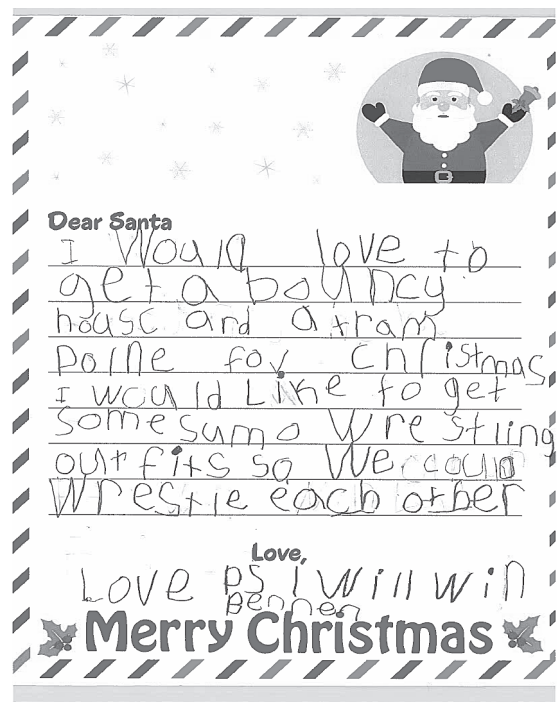 Dear Santa
I Would love to
get a bouncy
house and a tram
poine for christmas
I would Like to get
some sumo Wrestling
outfits so We could
Wrestle each other
Love,
Love PS I Will win
Bennen
Merry Christmas